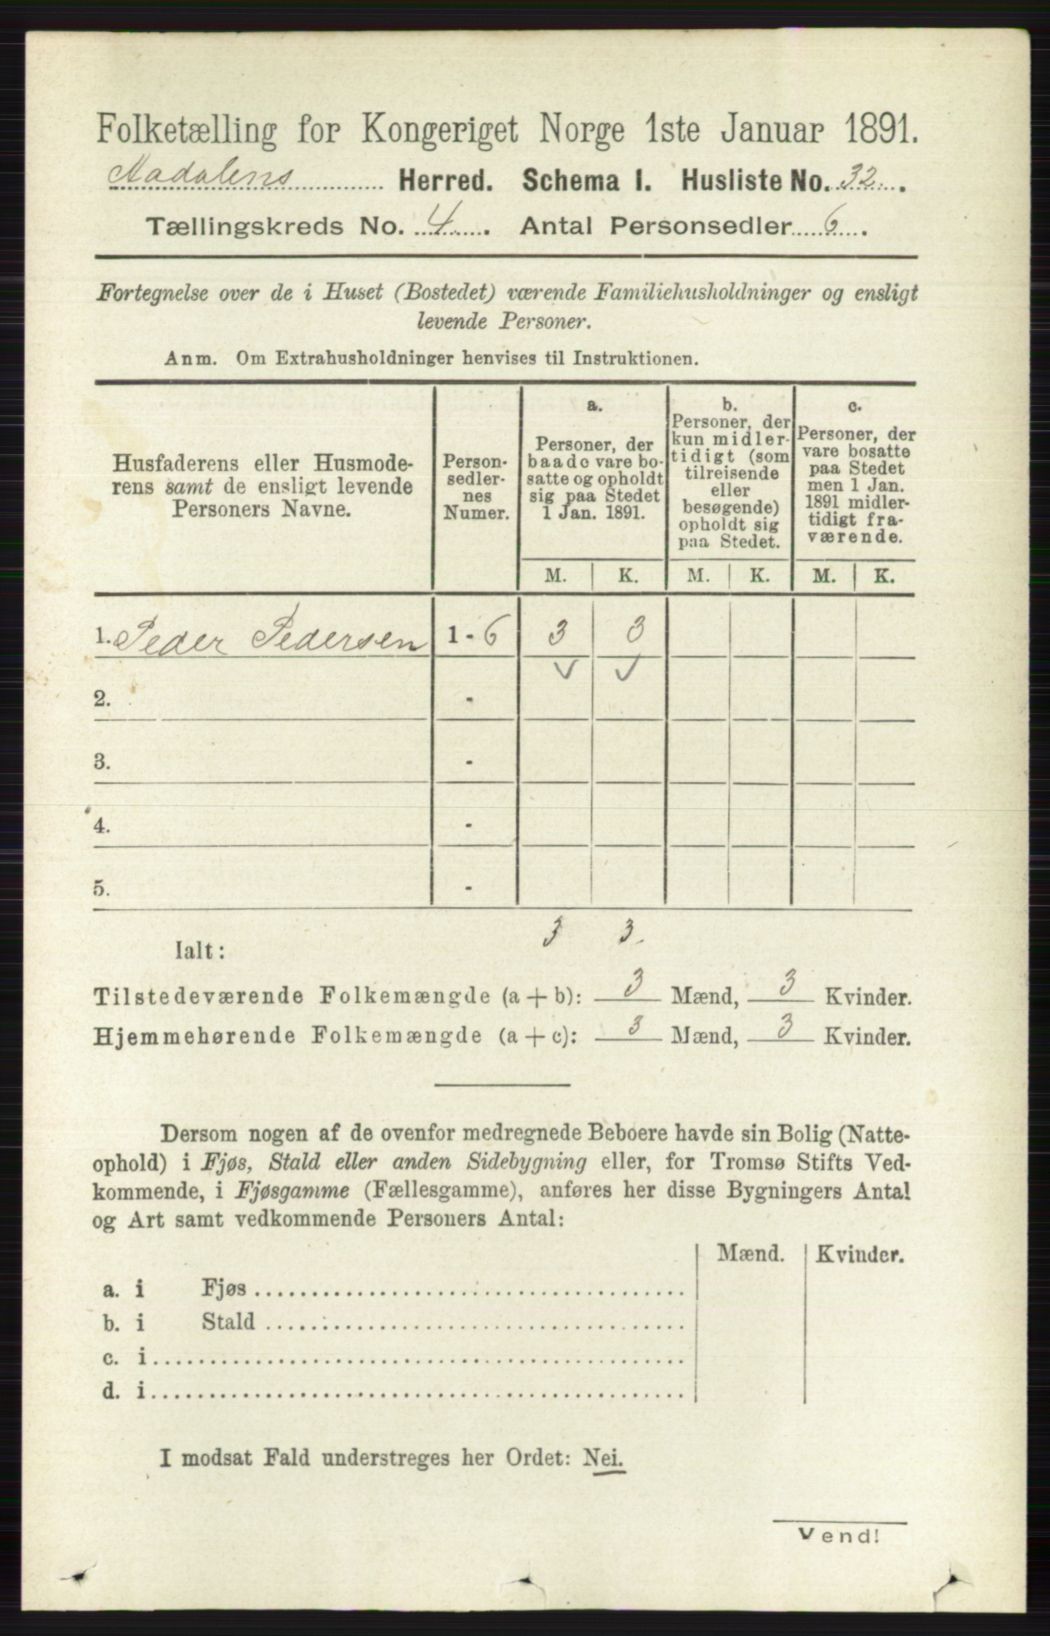 Folketælling for Kongeriget Norge 1ste Januar 1891.
Aadalens Herred. Schema I. Husliste No. 32.
Tællingskreds No. 4. Antal Personsedler 6.
Fortegnelse over de i Huset (Bostedet) værende Familiehusholdninger og ensligt
levende Personer.
Anm. Om Extrahusholdninger henvises til Instruktionen.
Husfaderens eller Husmode-
rens samt de ensligt levende
Personers Navne.
Person-
sedler-
nes
Numer.
a.
Personer, der
baade vare bo-
satte og opholdt
sig paa Stedet
1 Jan. 1891.
b.
Personer, der
kun midler-
tidigt (som
tilreisende
eller
besøgende)
opholdt sig
paa Stedet.
c.
Personer, der
vare bosatte
paa Stedet
men 1 Jan.
1891 midler-
tidigt fra-
værende.
M. K. M. K. M. K.
1. Peder Pedersen 1 - 6 3 3
2. -
3. -
4. -
5. -
Ialt: 3 3.
Tilstedeværende Folkemængde (a + b): 3 Mænd, 3 Kvinder.
Hjemmehørende Folkemængde (a + c): 3 Mænd, 3 Kvinder.
Dersom nogen af de ovenfor medregnede Beboere havde sin Bolig (Natte-
ophold) i Fjøs, Stald eller anden Sidebygning eller, for Tromsø Stifts Ved-
kommende, i Fjøsgamme (Fællesgamme), anføres her disse Bygningers Antal
og Art samt vedkommende Personers Antal:
Mænd. Kvinder.
a. i Fjøs
b. i Stald
c. i
d. i
I modsat Fald understreges her Ordet: Nei.
Vend!